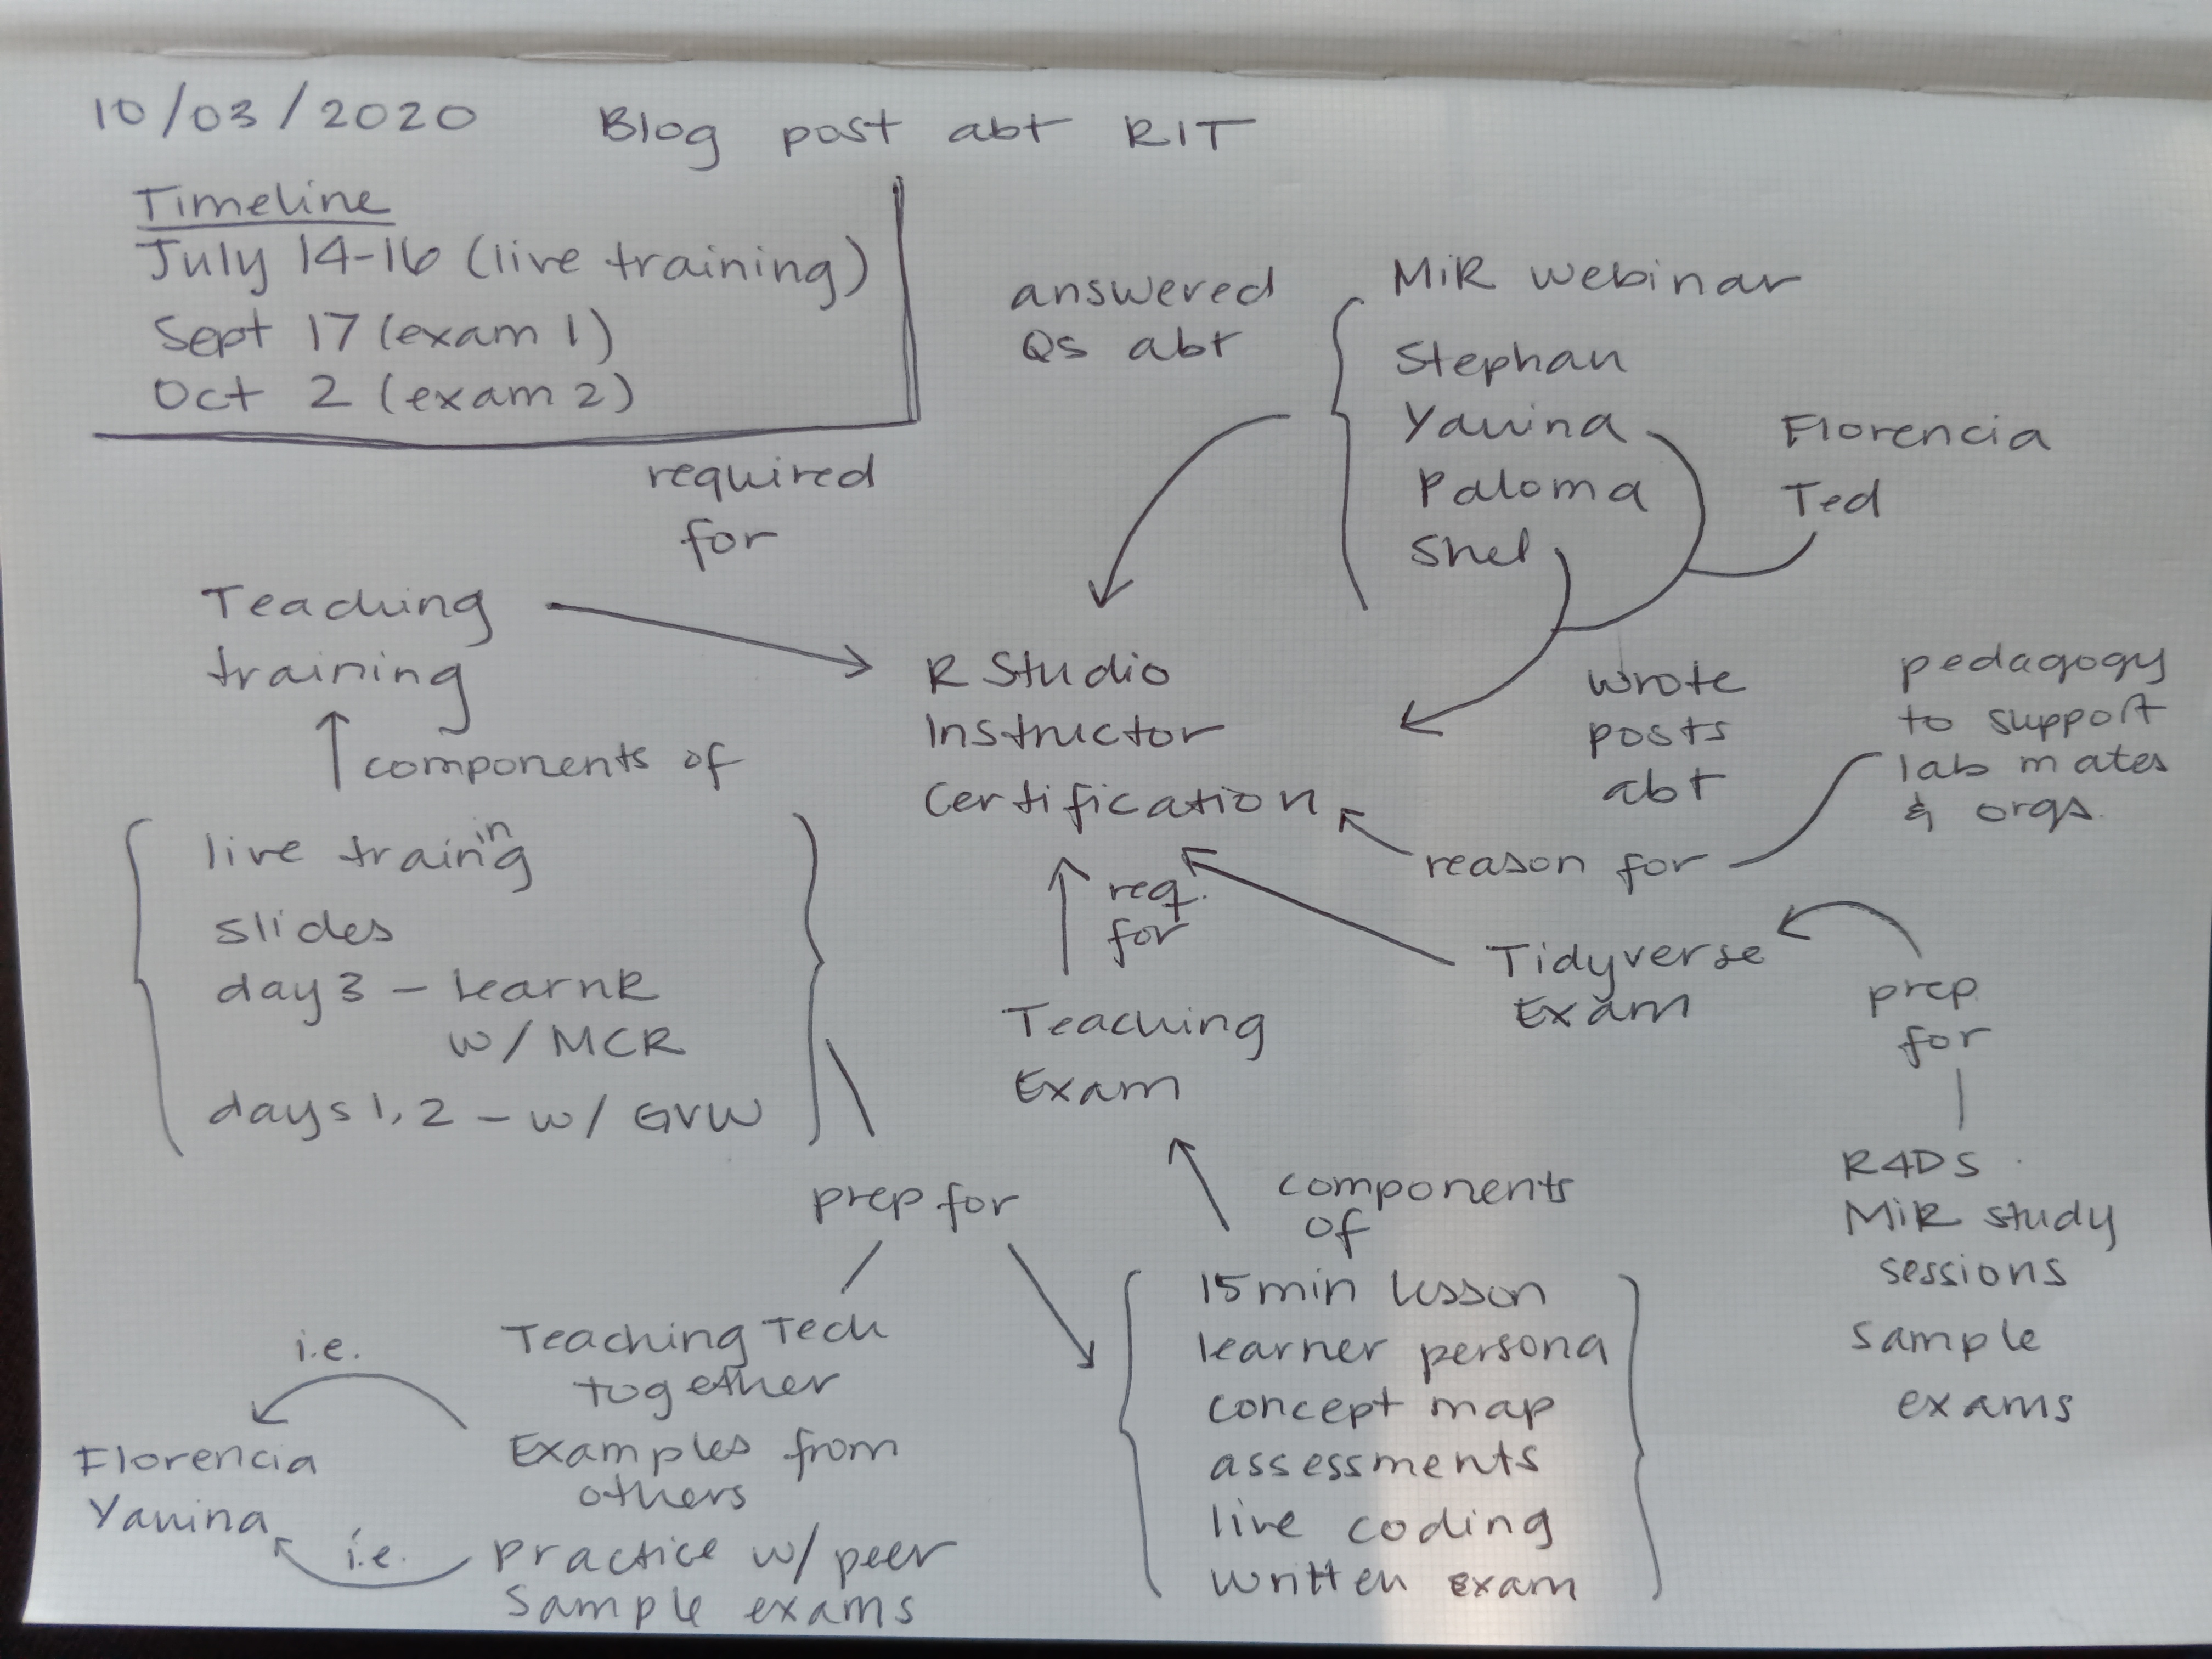 10/03/2020 Blog post abt RIT
Timeline
July 14-16 (live training)
Sept 17 (exam 1)
Oct 2 (exam 2)
answered
Qs abt
MiR webinar
Stephan
Yanina
Paloma
Shel
Florencia
Ted
required
for
Teaching
training
RStudio
Instructor
Certification
wrote
posts
abt
pedagogy
to support
lab mates
& orgs.
reason for
components of
live training
slides
day 3 - learnR
w/ MCR
days 1, 2 - w/ GVW
req.
for
Teaching
Exam
Tidyverse
Exam
prep
for
R4DS
MiR study
sessions
sample
exams
prep for
components
of
15 min lesson
learner persona
concept map
assessments
live coding
written exam
Teaching Tech
together
Examples from
others
Practice w/ peer
Sample exams
i.e.
Florencia
Yanina
i.e.